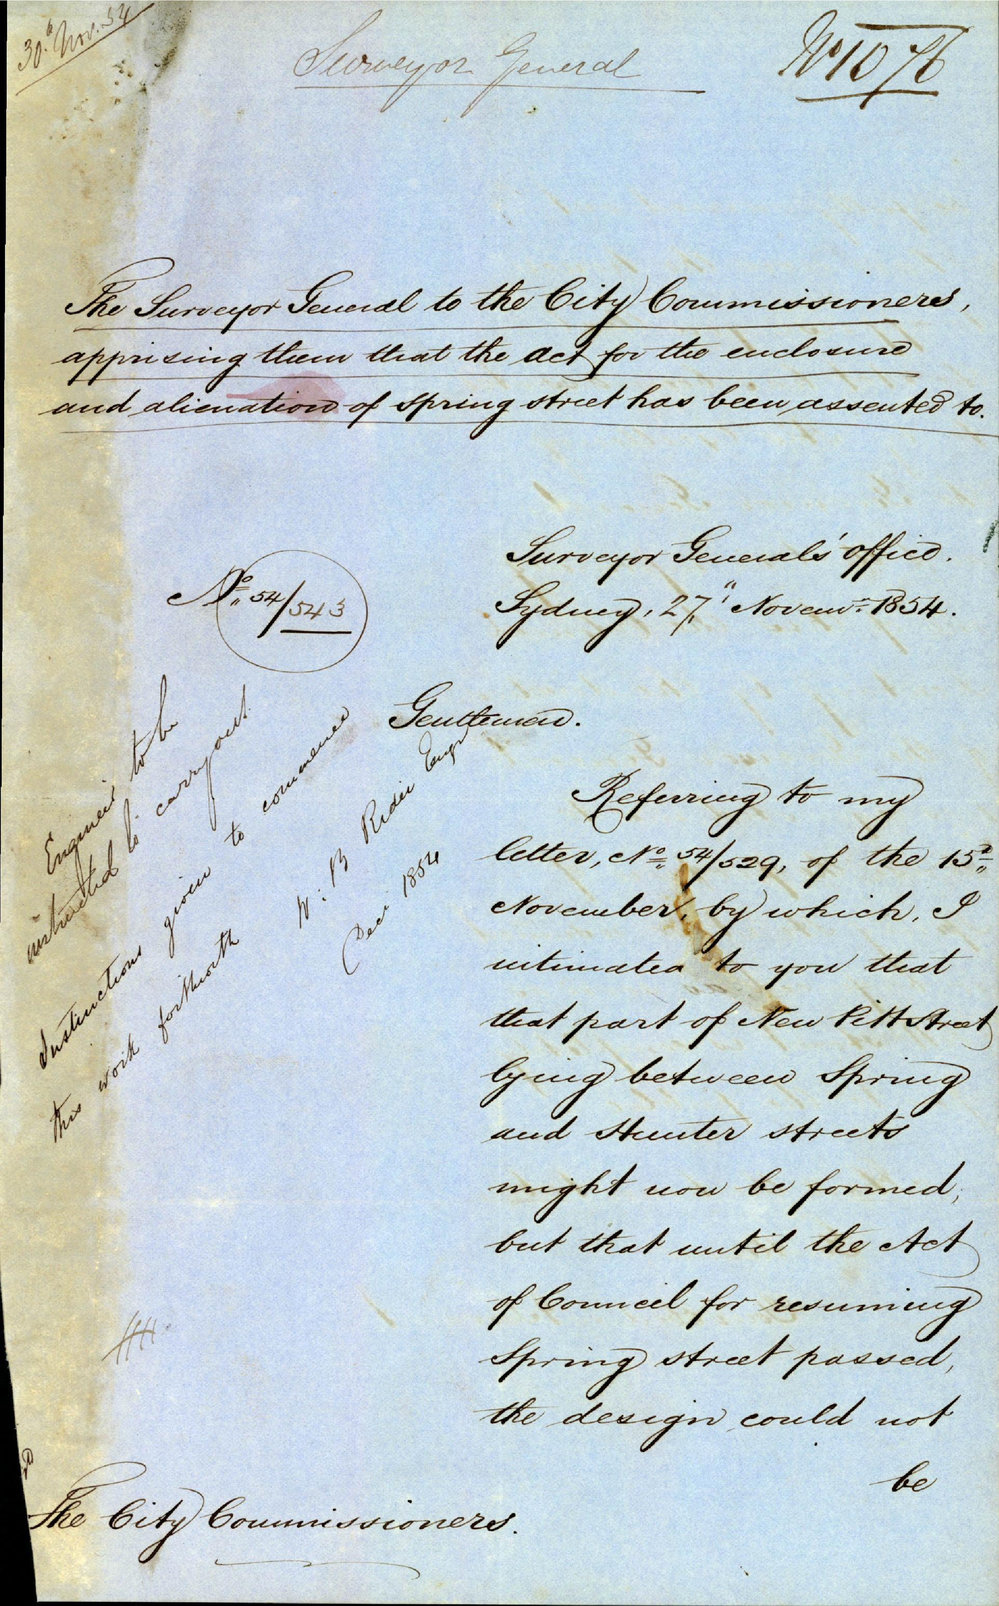 30th Nov. 54
Surveyor General
No 1076
The Surveyor General to the City Commissioners,
apprising them that the act for the enclosure
and alienation of Spring street has been assented to.
Surveyor General's office.
Sydney, 27" Novemr. 1854.
No. 54/543
Gentlemen.
Referring to my
letter, No. 54/529, of the 15th
November, by which, I
intimated to you that
that part of New Pitt Street
lying between Spring
and Hunter streets
might now be formed,
but that until the Act
of Council for resuming
Spring street passed,
the design could not
be
Engineer to be
instructed to carry out.
Instructions given to commence
this work forthwith
W: B Rider Engr
Decr 1854
The City Commissioners.